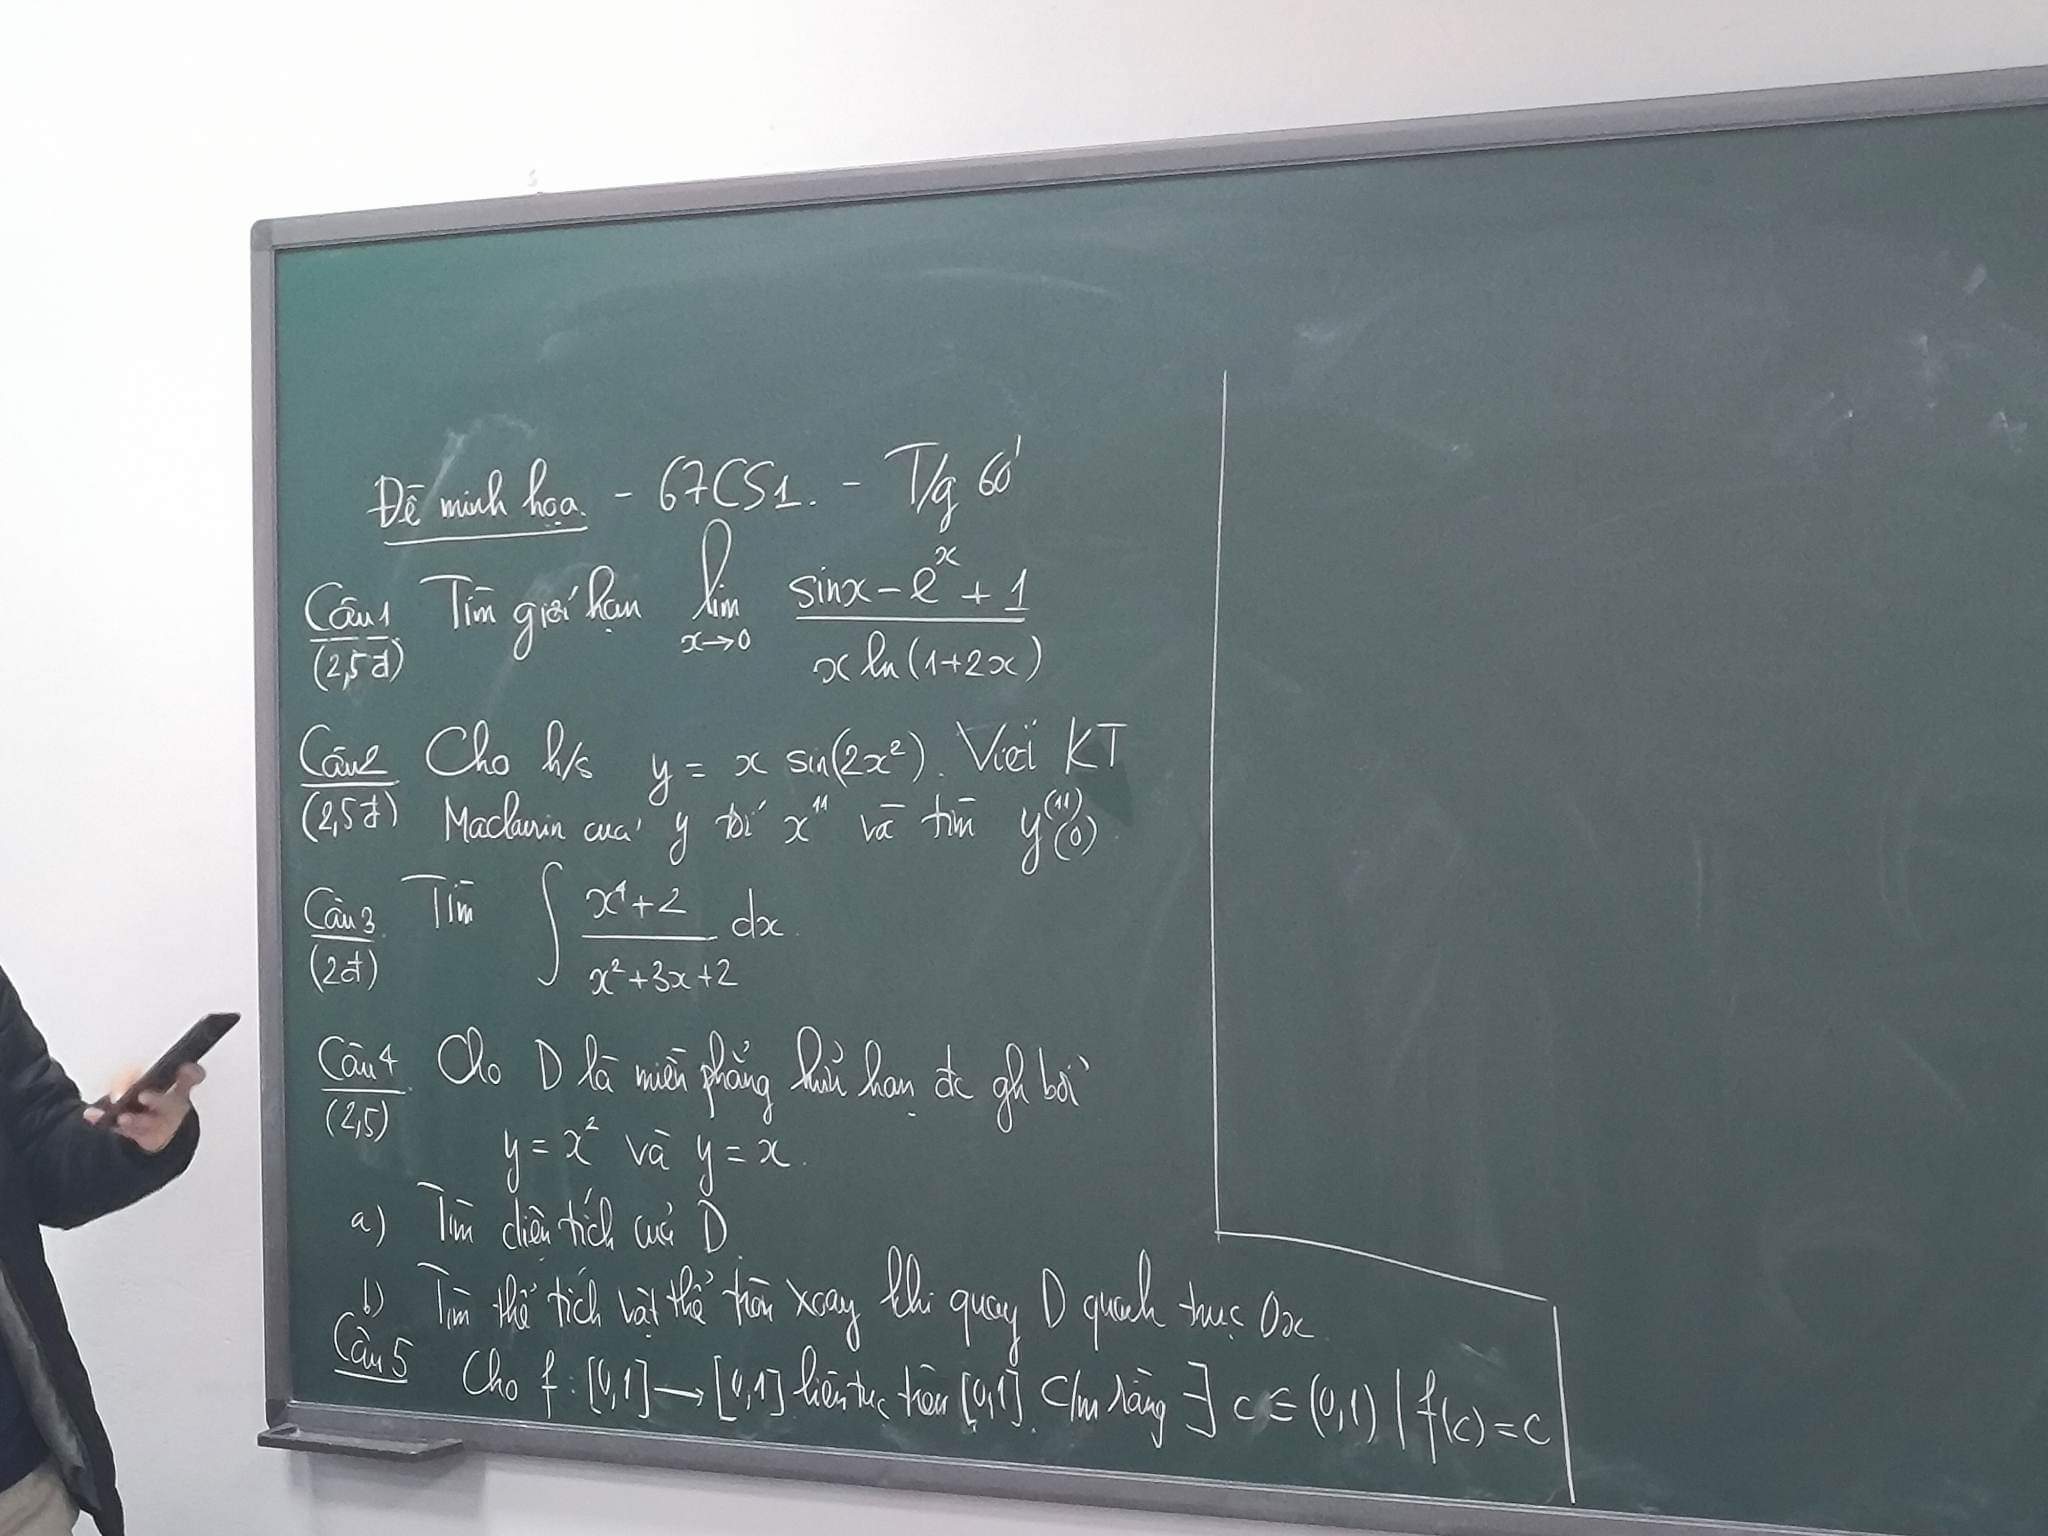 Đề minh họa. - 67CS1. - T/g 60'
Câu 1 Tìm giới hạn lim x→0 (sinx - e^x + 1) / (x ln(1+2x))
(2,5đ)
Câu 2 Cho h/s y = x sin(2x²). Viết KT
(2,5đ) Maclaurin của y tới x¹¹ và tìm y⁽¹¹⁾(0).
Câu 3 Tìm ∫ (x⁴+2) / (x²+3x+2) dx.
(2đ)
Câu 4 Cho D là miền phẳng hữu hạn đc gh bởi
(2,5) y = x² và y = x.
a) Tìm diện tích của D.
b) Tìm thể tích vật thể tròn xoay khi quay D quanh trục Ox.
Câu 5 Cho f : [0,1] → [0,1] liên tục trên [0,1]. C/m rằng ∃ c ∈ (0,1) | f(c) = c